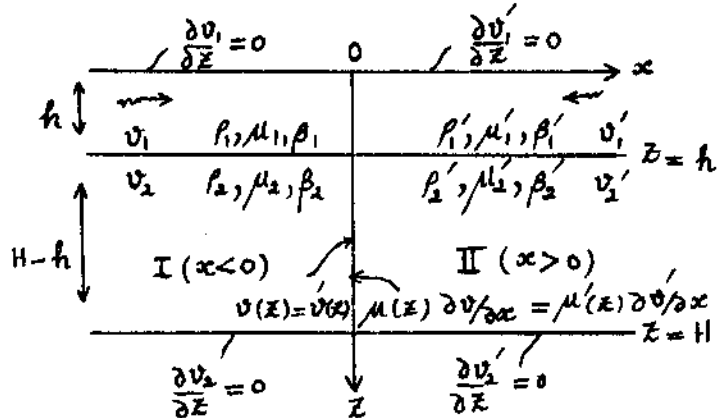 ∂v₁/∂z = 0 0 ∂v₁′/∂z = 0
x
h
v₁ ρ₁, μ₁, β₁ ρ₁′, μ₁′, β₁′ v₁′
z = h
v₂ ρ₂, μ₂, β₂ ρ₂′, μ₂′, β₂′ v₂′
H-h
I (x<0) II (x>0)
v(z)=v′(z) μ(z) ∂v/∂x = μ′(z) ∂v′/∂x
z = H
∂v₂/∂z = 0 z ∂v₂′/∂z = 0